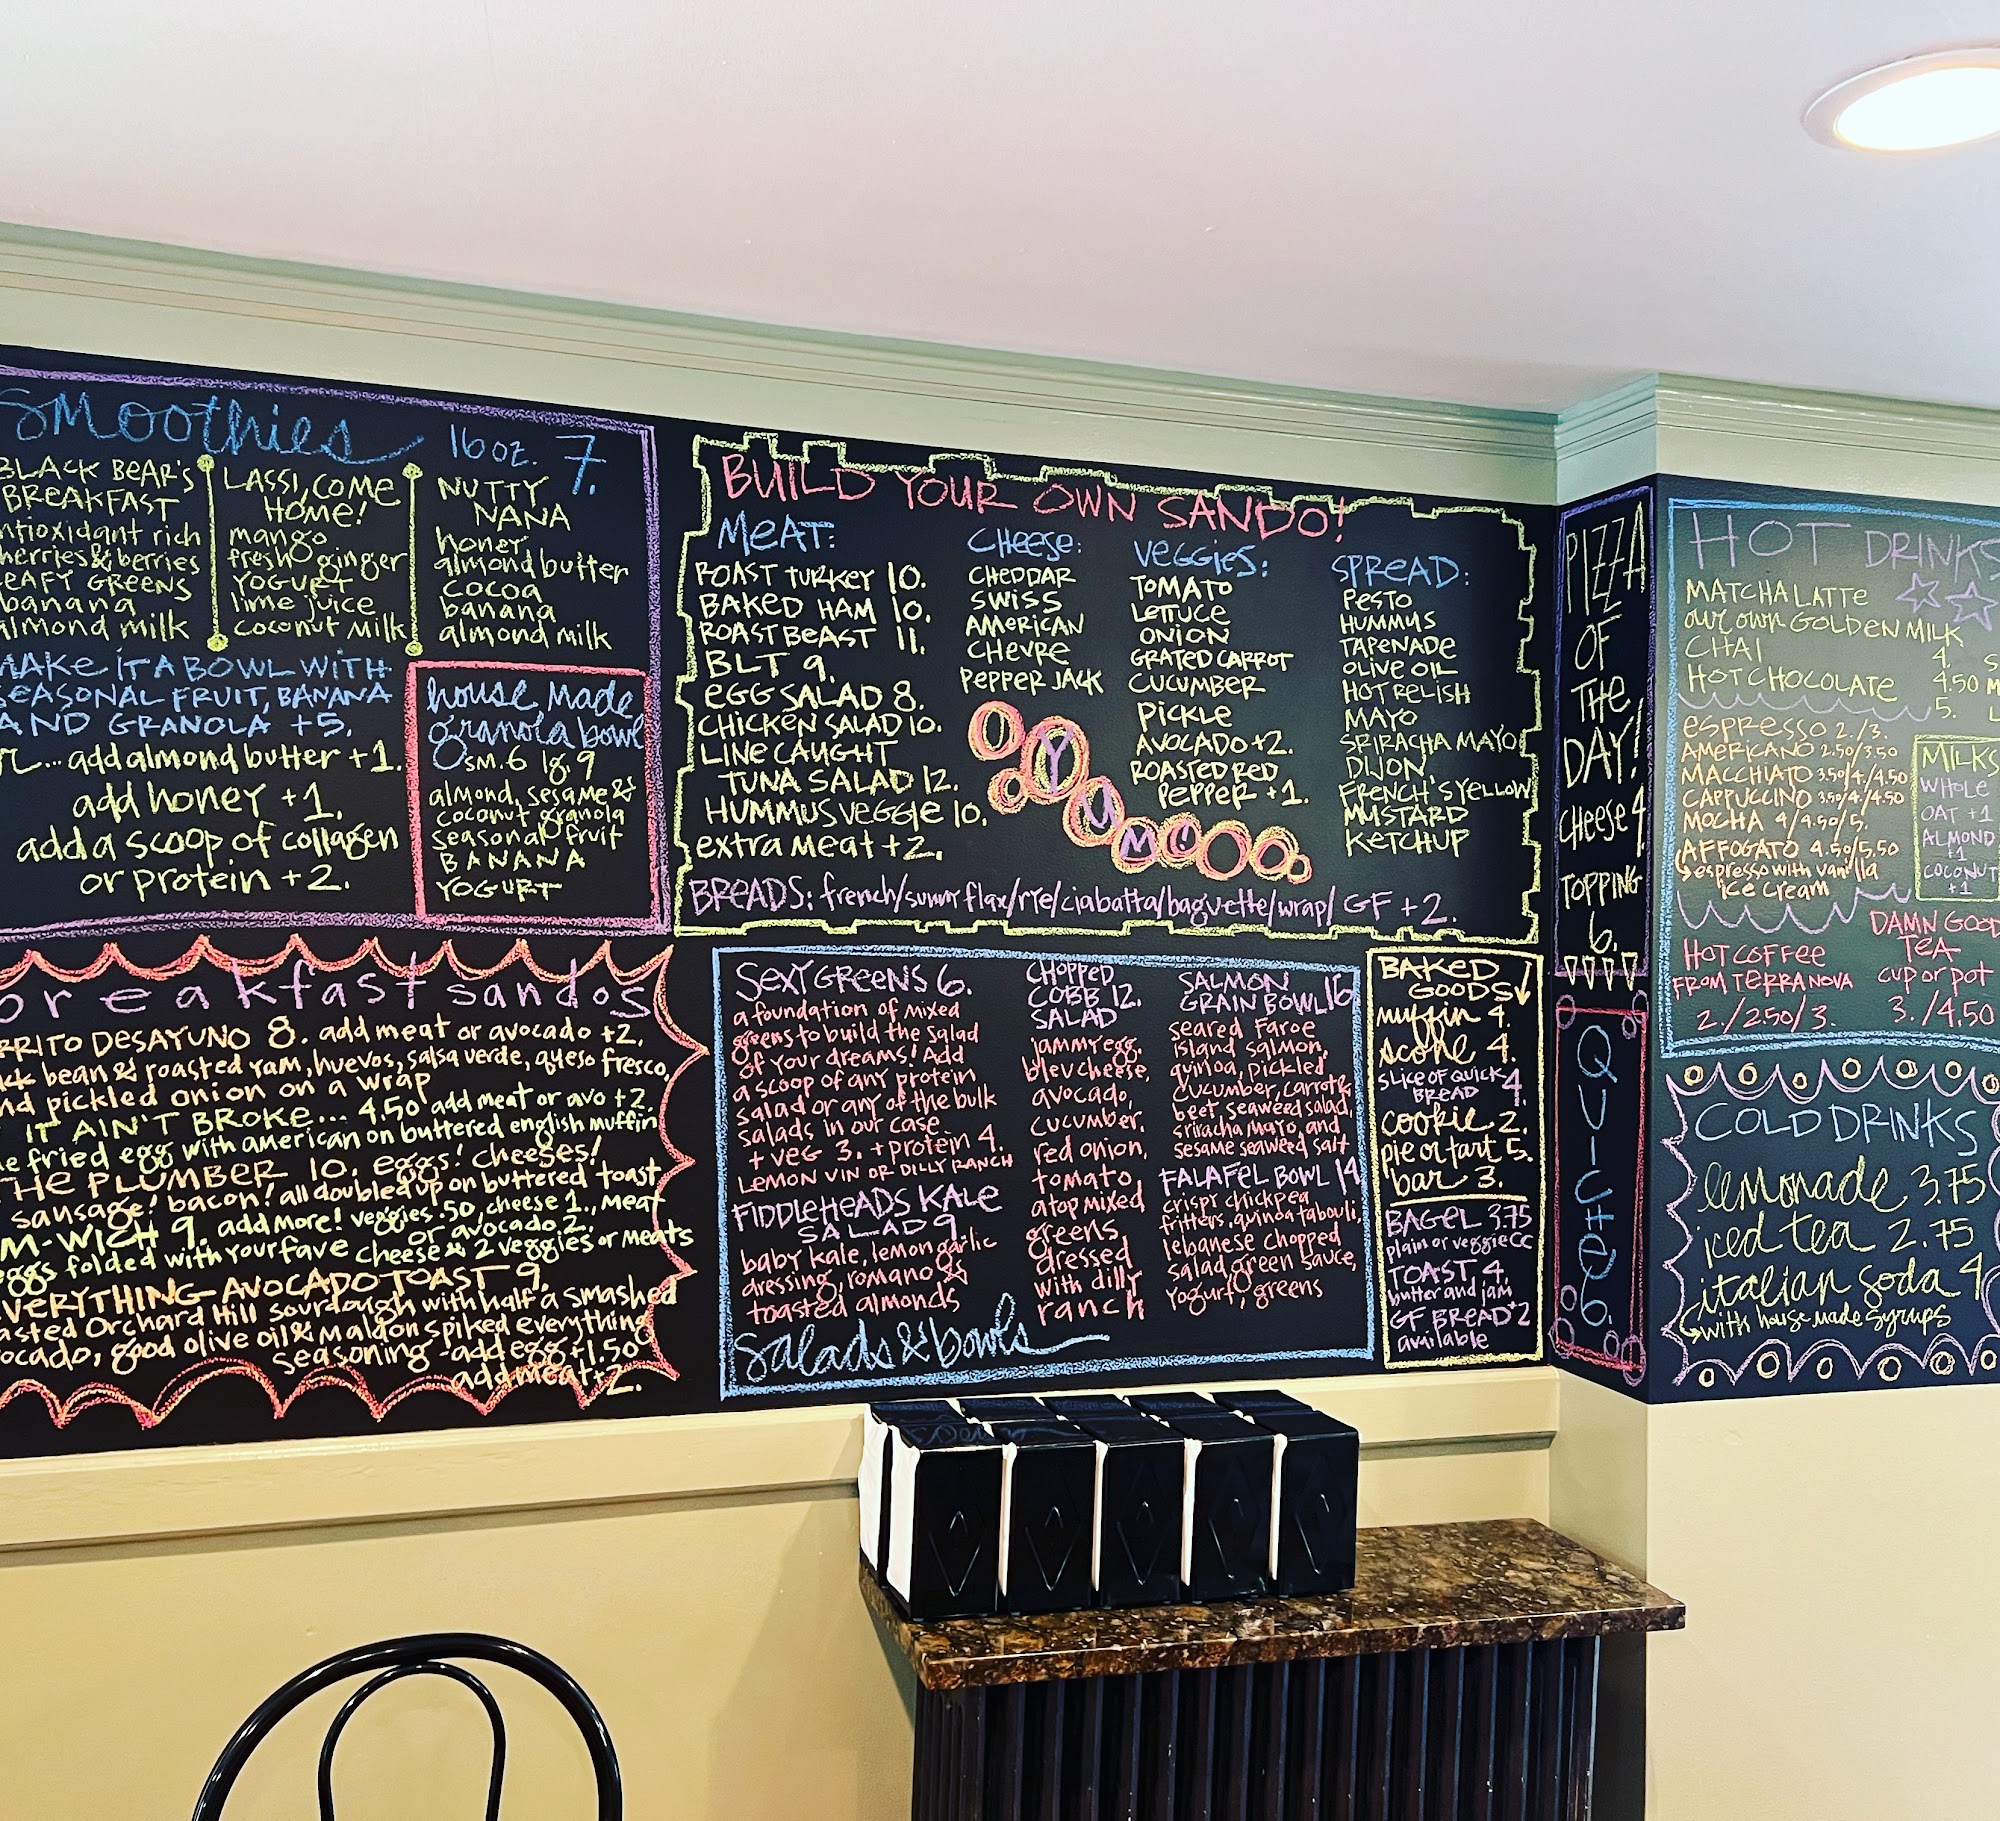 smoothies 16 oz. 7.
BLACK BEAR'S
BREAKFAST
ntioxidant rich
herries & berries
EAFY GREENS
banana
almond milk
LASSI, COME
HOME!
mango
fresh ginger
YOGURT
lime juice
coconut milk
NUTTY
NANA
honey
almond butter
cocoa
banana
almond milk
MAKE IT A BOWL WITH
SEASONAL FRUIT, BANANA
AND GRANOLA +5.
... add almond butter +1.
add honey +1.
add a scoop of collagen
or protein +2.
house made
granola bowl
sm. 6 lg. 9
almond, sesame &
coconut granola
seasonal fruit
BANANA
YOGURT
breakfast sandos
RRITO DESAYUNO 8. add meat or avocado +2.
ck bean & roasted yam, huevos, salsa verde, queso fresco,
nd pickled onion on a wrap
IT AIN'T BROKE... 4.50 add meat or avo +2.
e fried egg with american on buttered english muffin
THE PLUMBER 10. eggs! cheeses!
sausage! bacon! all doubled up on buttered toast
M-WICH 9. add more! veggies .50, cheese 1., meat
or avocado 2.
eggs folded with your fave cheese & 2 veggies or meats
EVERYTHING AVOCADO TOAST 9.
asted Orchard Hill sourdough with half a smashed
ocado, good olive oil & Maldon spiked everything
seasoning - add egg +1.50
add meat +2.
BUILD YOUR OWN SANDO!
MEAT:
ROAST TURKEY 10.
BAKED HAM 10.
ROAST BEAST 11.
BLT 9.
EGG SALAD 8.
CHICKEN SALAD 10.
LINE CAUGHT
TUNA SALAD 12.
HUMMUS VEGGIE 10.
extra meat +2.
CHEESE:
CHEDDAR
SWISS
AMERICAN
CHEVRE
PEPPER JACK
YUM!
VEGGIES:
TOMATO
LETTUCE
ONION
GRATED CARROT
CUCUMBER
PICKLE
AVOCADO +2.
ROASTED RED
PEPPER +1.
SPREAD:
PESTO
HUMMUS
TAPENADE
OLIVE OIL
HOT RELISH
MAYO
SRIRACHA MAYO
DIJON
FRENCH'S YELLOW
MUSTARD
KETCHUP
BREADS: french/sunny flax/rye/ciabatta/baguette/wrap/ GF +2.
SEXY GREENS 6.
a foundation of mixed
greens to build the salad
of your dreams! Add
a scoop of any protein
salad or any of the bulk
salads in our case.
+ veg 3. + protein 4.
LEMON VIN OR DILLY RANCH
FIDDLEHEADS KALE
SALAD 9.
baby kale, lemon garlic
dressing, romano &
toasted almonds
CHOPPED
COBB 12.
SALAD
jammy egg,
bleu cheese,
avocado,
cucumber,
red onion,
tomato
atop mixed
greens,
dressed
with dilly
ranch
SALMON
GRAIN BOWL 16
seared Faroe
island salmon,
quinoa, pickled
cucumber, carrot &
beet, seaweed salad,
sriracha mayo, and
sesame seaweed salt
FALAFEL BOWL 14
crispy chickpea
fritters, quinoa tabouli,
lebanese chopped
salad, green sauce,
yogurt, greens
salads & bowls
BAKED
GOODS
muffin 4.
scone 4.
SLICE OF QUICK
BREAD 4
cookie 2.
pie or tart 5.
bar 3.
BAGEL 3.75
plain or veggie CC
TOAST 4.
butter and jam
GF BREAD +2
available
PIZZA
OF
THE
DAY!
CHEESE 4.
TOPPING
6.
QUICHE
6.
HOT DRINKS
MATCHA LATTE
our own GOLDEN MILK
CHAI
HOT CHOCOLATE
4. S
4.50 M
5. L
espresso 2./3.
AMERICANO 2.50/3.50
MACCHIATO 3.50/4./4.50
CAPPUCCINO 3.50/4./4.50
MOCHA 4/4.50/5.
AFFOGATO 4.50/5.50
espresso with vanilla
ice cream
MILKS
WHOLE
OAT +1
ALMOND
+1
COCONUT
+1
HOT COFFEE
FROM TERRA NOVA
2./2.50/3.
DAMN GOOD
TEA
cup or pot
3./4.50
COLD DRINKS
lemonade 3.75
iced tea 2.75
italian soda 4
with house made syrups